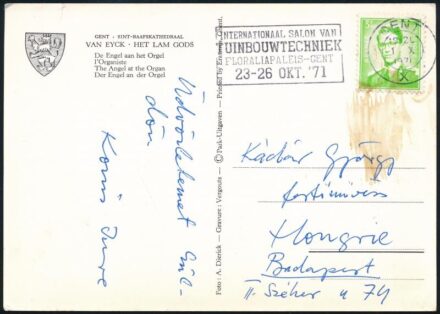 GENT - SINT-BAAFSKATHEDRAAL
VAN EYCK - HET LAM GODS
De Engel aan het Orgel
l'Organiste
The Angel at the Organ
Der Engel an der Orgel
INTERNATIONAAL SALON VAN
TUINBOUWTECHNIEK
FLORALIAPALEIS-GENT
23-26 OKT. '71
GENT
1971
Foto : A. Dierick - Gravure : Vergouts - © Park-Uitgaven - Printed by Erasmus, Ghent.
Üdvözletemet kül-
döm
Kornis
Kádár György
festőművész
Hongrie
Budapest
II. Szèher u 74